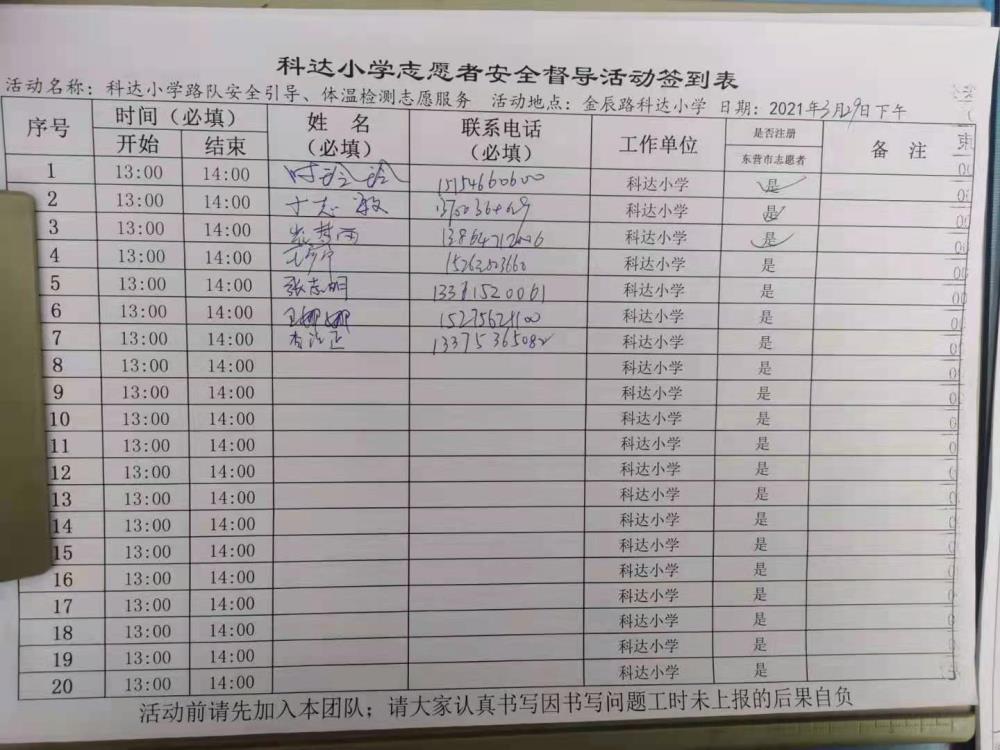 科达小学志愿者安全督导活动签到表
活动名称：科达小学路队安全引导、体温检测志愿服务 活动地点：金辰路科达小学 日期：2021年3月29日下午
序号 时间（必填） 姓 名（必填） 联系电话（必填） 工作单位 是否注册 备 注
开始 结束 东营市志愿者
1 13:00 14:00 15154660600 科达小学 是
2 13:00 14:00 于志敏 科达小学 是
3 13:00 14:00 科达小学 是
4 13:00 14:00 科达小学 是
5 13:00 14:00 张志明 科达小学 是
6 13:00 14:00 王娜娜 科达小学 是
7 13:00 14:00 13375365082 科达小学 是
8 13:00 14:00 科达小学 是
9 13:00 14:00 科达小学 是
10 13:00 14:00 科达小学 是
11 13:00 14:00 科达小学 是
12 13:00 14:00 科达小学 是
13 13:00 14:00 科达小学 是
14 13:00 14:00 科达小学 是
15 13:00 14:00 科达小学 是
16 13:00 14:00 科达小学 是
17 13:00 14:00 科达小学 是
18 13:00 14:00 科达小学 是
19 13:00 14:00 科达小学 是
20 13:00 14:00 科达小学 是
活动前请先加入本团队；请大家认真书写因书写问题工时未上报的后果自负